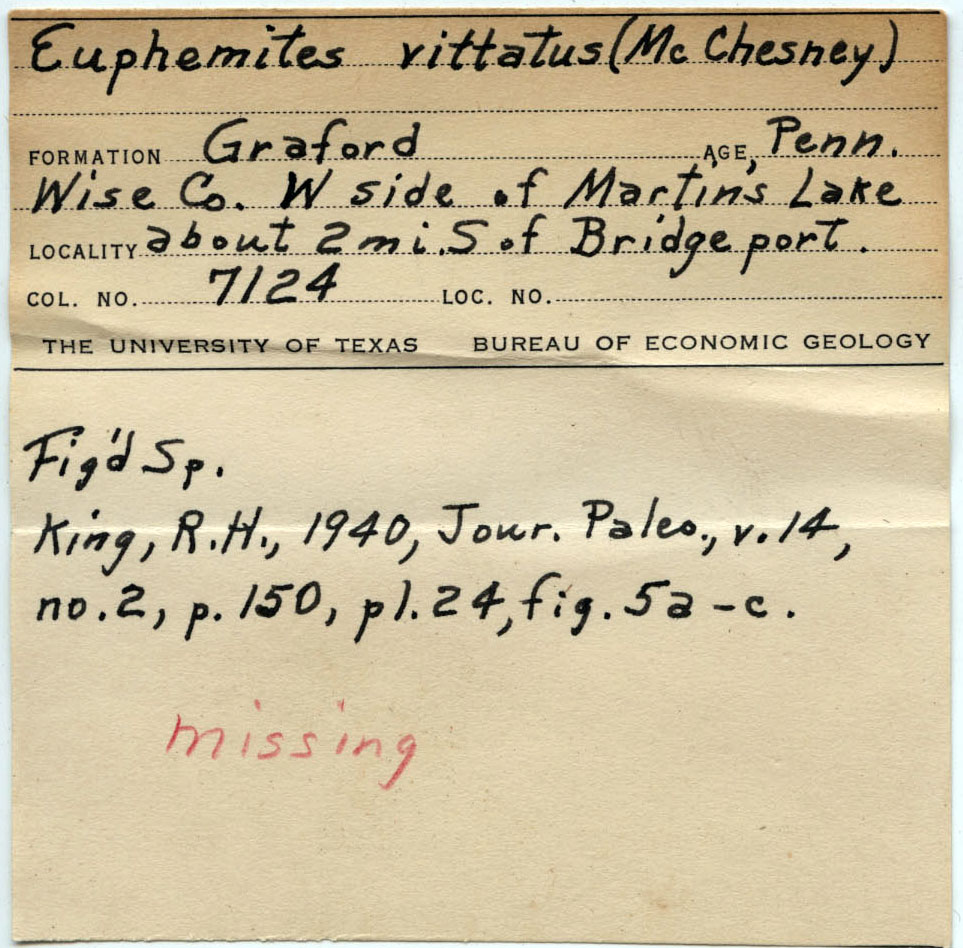 Euphemites vittatus (McChesney)
FORMATION Graford AGE Penn.
Wise Co. W side of Martin's Lake
LOCALITY about 2 mi. S of Bridgeport.
COL. NO. 7124 LOC. NO.
THE UNIVERSITY OF TEXAS BUREAU OF ECONOMIC GEOLOGY
Fig'd Sp.
King, R.H., 1940, Jour. Paleo., v. 14,
no. 2, p. 150, pl. 24, fig. 5a-c.
missing